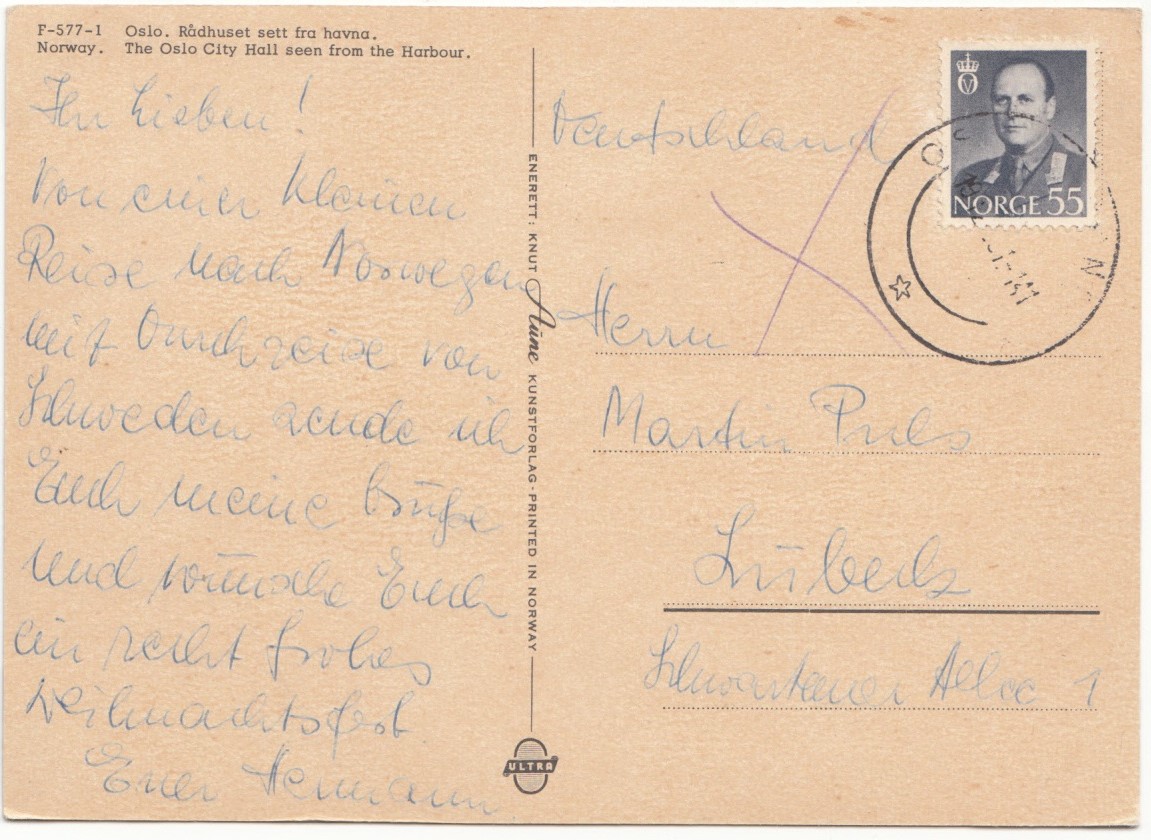 F-577-1 Oslo. Rådhuset sett fra havna.
Norway. The Oslo City Hall seen from the Harbour.
Ihr Lieben!
Von einer kleinen
Reise nach Norwegen
mit Durchreise von
Schweden sende ich
Euch meine Grüße
und wünsche Euch
ein recht frohes
Weihnachtsfest
Euer Hermann
ENERETT: KNUT Aune KUNSTFORLAG - PRINTED IN NORWAY
ULTRA
NORGE 55
Deutschland
Herrn
Martin Puls
Lübeck
Schwartauer Allee 1